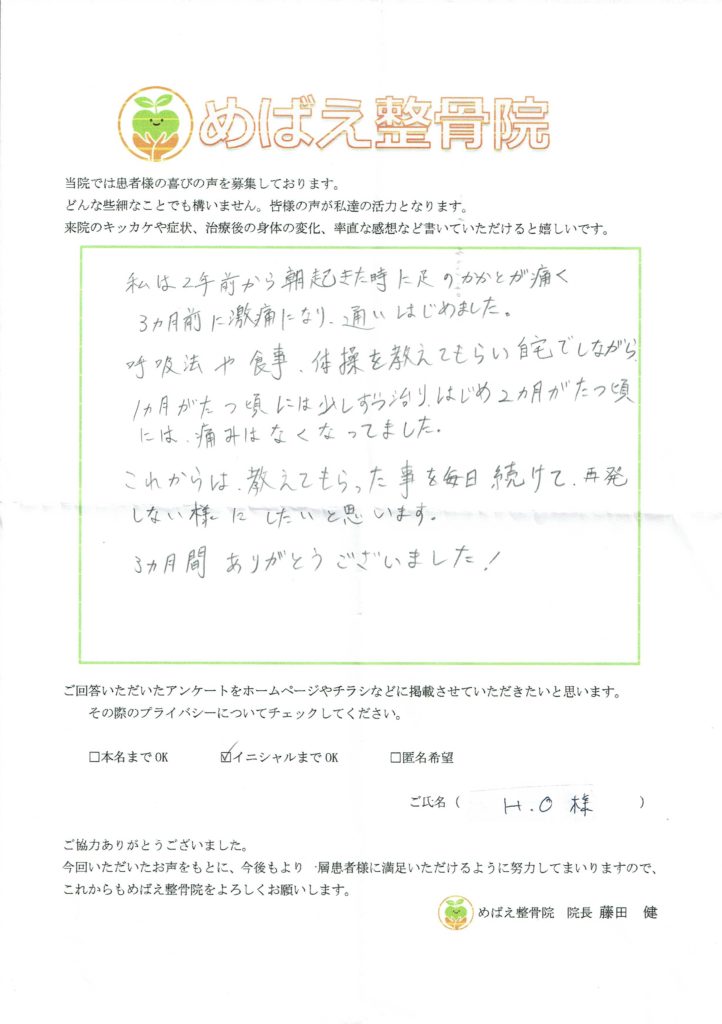 めばえ整骨院
当院では患者様の喜びの声を募集しております。
どんな些細なことでも構いません。皆様の声が私達の活力となります。
来院のキッカケや症状、治療後の身体の変化、率直な感想など書いていただけると嬉しいです。
私は2年前から朝起きた時に足のかかとが痛く
3ヵ月前に激痛になり、通いはじめました。
呼吸法や食事、体操を教えてもらい自宅でしながら、
1ヵ月がたつ頃には少しずつ治り、はじめ2ヵ月がたつ頃
には、痛みはなくなってました。
これからは、教えてもらった事を毎日続けて、再発
しない様にしたいと思います。
3ヵ月間ありがとうございました!
ご回答いただいたアンケートをホームページやチラシなどに掲載させていただきたいと思います。
その際のプライバシーについてチェックしてください。
□本名までOK ☑イニシャルまでOK □匿名希望
ご氏名（ H.O様 ）
ご協力ありがとうございました。
今回いただいたお声をもとに、今後もより一層患者様に満足いただけるように努力してまいりますので、
これからもめばえ整骨院をよろしくお願いします。
めばえ整骨院 院長 藤田 健